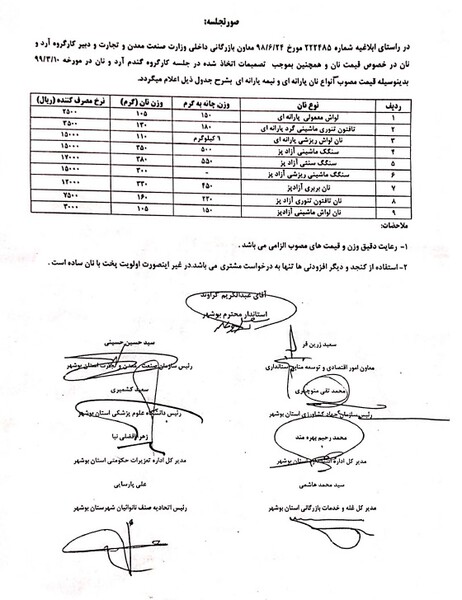 صورتجلسه:
در راستای ابلاغیه شماره ۲۲۲۴۸۵ مورخ ۹۸/۶/۲۴ معاون بازرگانی داخلی وزارت صنعت معدن و تجارت و دبیر کارگروه آرد و
نان در خصوص قیمت نان و همچنین بموجب تصمیمات اتخاذ شده در جلسه کارگروه گندم آرد و نان در مورخه ۹۹/۳/۱۰
بدینوسیله قیمت مصوب انواع نان یارانه ای و نیمه یارانه ای بشرح جدول ذیل اعلام میگردد.
ردیف نوع نان وزن چانه به گرم وزن نان (گرم) نرخ مصرف کننده (ریال)
۱ لواش معمولی یارانه ای ۱۵۰ ۱۰۵ ۲۵۰۰
۲ تافتون تنوری ماشینی گرد یارانه ای ۱۸۰ ۱۳۰ ۳۵۰۰
۳ نان لواش ریزشی یارانه ای ۶ کیلوگرم ۱۱۰ ۱۵۰۰۰
۴ سنگک ماشینی آزاد پز ۵۰۰ ۳۵۰ ۱۵۰۰۰
۵ سنگک سنتی آزاد پز ۵۵۰ ۳۸۰ ۱۷۰۰۰
۶ سنگک ماشینی ریزشی آزاد پز - ۳۰۰ ۱۵۰۰۰
۷ نان بربری آزادپز ۴۵۰ ۳۳۰ ۱۲۰۰۰
۸ نان تافتون تنوری آزاد پز ۲۲۰ ۱۶۰ ۷۵۰۰
۹ نان لواش ماشینی آزادپز ۱۵۰ ۱۰۵ ۳۰۰۰
ملاحضات:
۱- رعایت دقیق وزن و قیمت های مصوب الزامی می باشد .
۲- استفاده از کنجد و دیگر افزودنی ها تنها به درخواست مشتری می باشد.در غیر اینصورت اولویت پخت با نان ساده است .
آقای عبدالکریم گراوند
استاندار محترم بوشهر
سعید زرین فر
معاون امور اقتصادی و توسعه منابع استانداری
سید حسین حسینی
رئیس سازمان صنعت معدن و تجارت استان بوشهر
محمد تقی منوچهری
رئیس سازمان جهاد کشاورزی استان بوشهر
سعید کشمیری
رئیس دانشگاه علوم پزشکی استان بوشهر
محمد رحیم بهره مند
مدیر کل اداره استان بوشهر
زهرا نیا
مدیر کل اداره تعزیرات حکومتی استان بوشهر
سید محمد هاشمی
مدیر کل غله و خدمات بازرگانی استان بوشهر
علی پارسایی
رئیس اتحادیه صنف نانوائیان شهرستان بوشهر